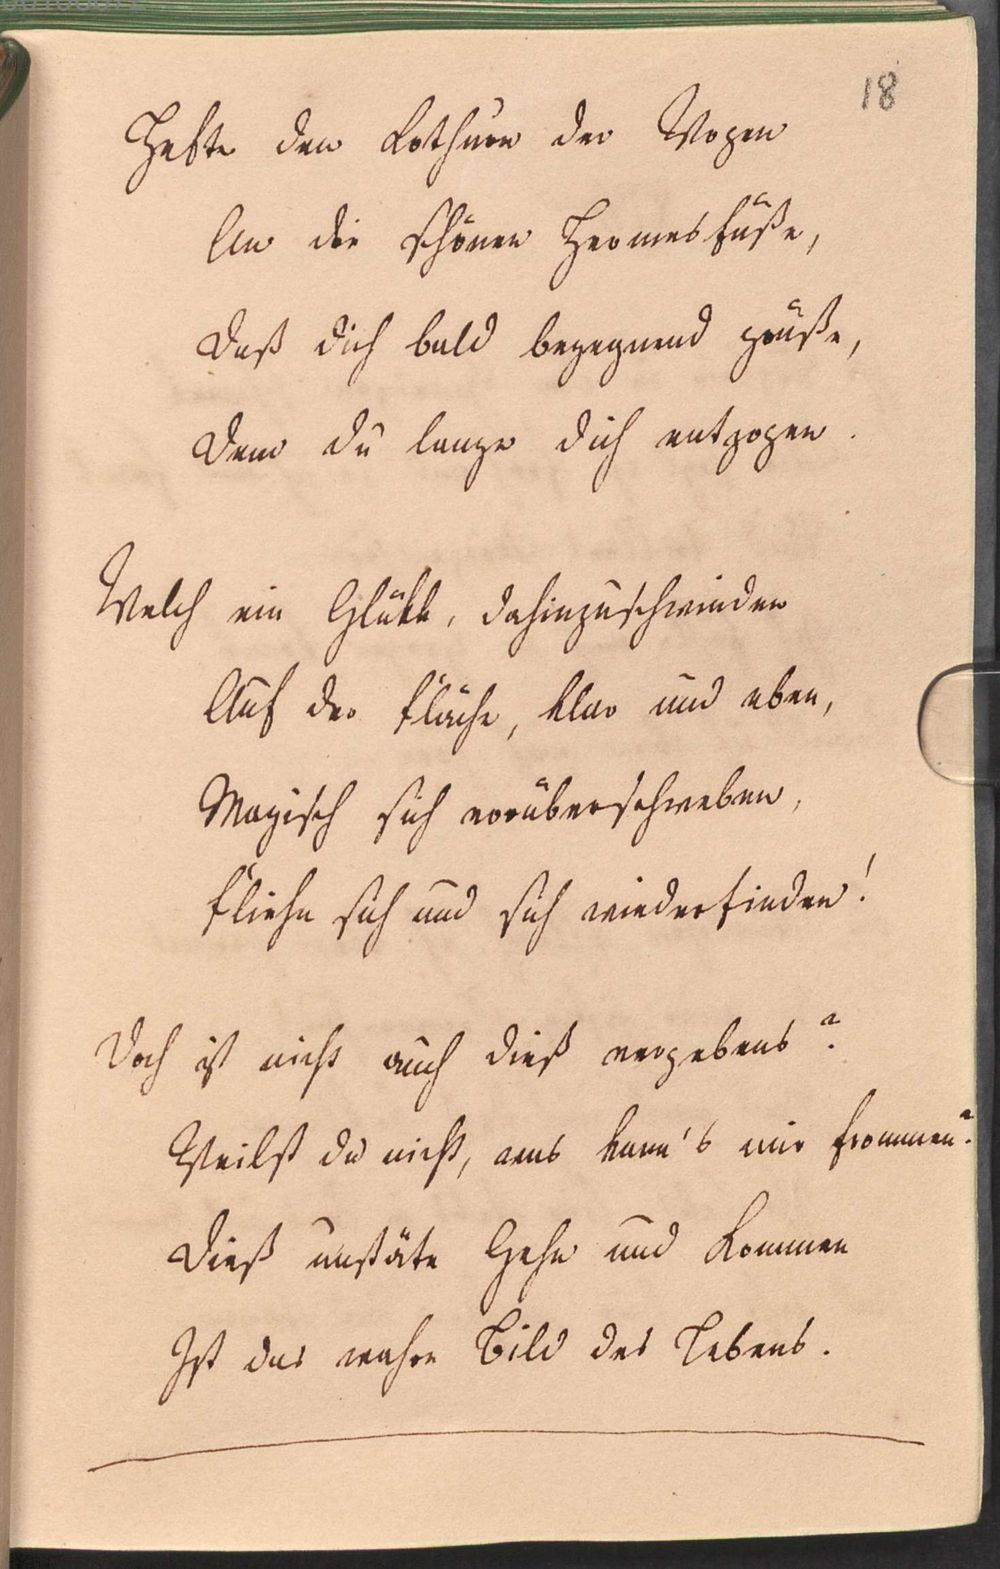 18
Hefte den Kothurn der Wogen
An die schönen Hermesfüße,
Daß dich bald begegnend grüße,
Dem du lange dich entzogen.
Welch ein Glükk, dahinzuschwinden
Auf der Fläche, klar und eben,
Magisch sich vorüberschweben,
Fliehn sich und sich wiederfinden!
Doch ist nicht auch dieß vergebens?
Weilst du nicht, was kann's mir frommen?
Dieß unstäte Gehn und Kommen
Ist das wahre Bild des Lebens.